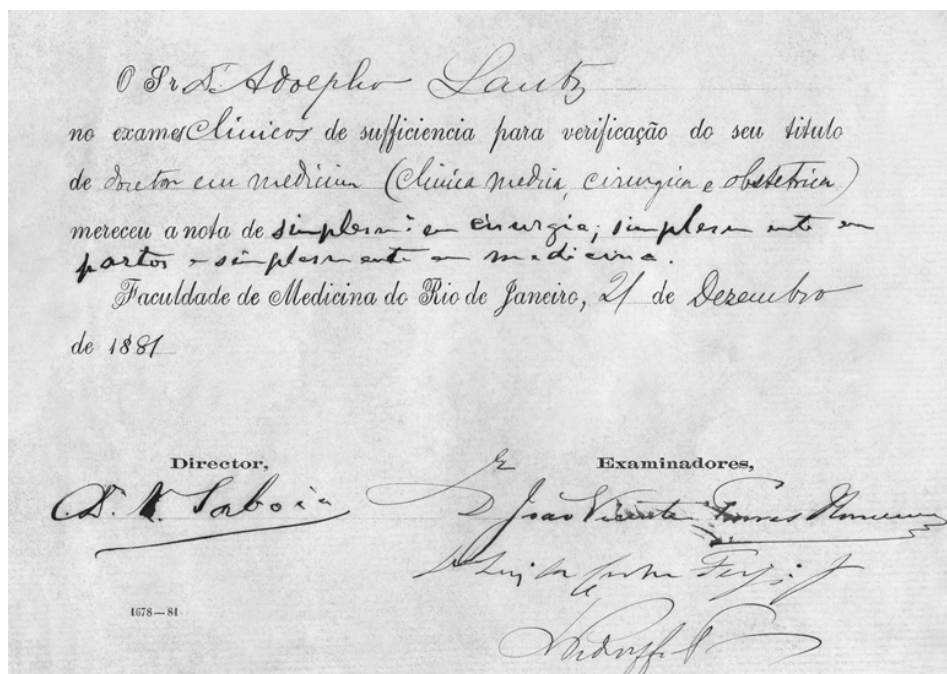 O Sr Dr. Adolpho Lutz
no exames Clinicos de sufficiencia para verificação do seu titulo
de doutor em medicina (clinica medica, cirurgica e obstetrica)
mereceu a nota de simplesm.te em cirurgia; simplesmente em
partos e simplesmente em medicina.
Faculdade de Medicina do Rio de Janeiro, 21 de Dezembro
de 1881
Director,
Examinadores,
Dr. V. Saboia
Dr João Vicente Torres Homem
1678—81